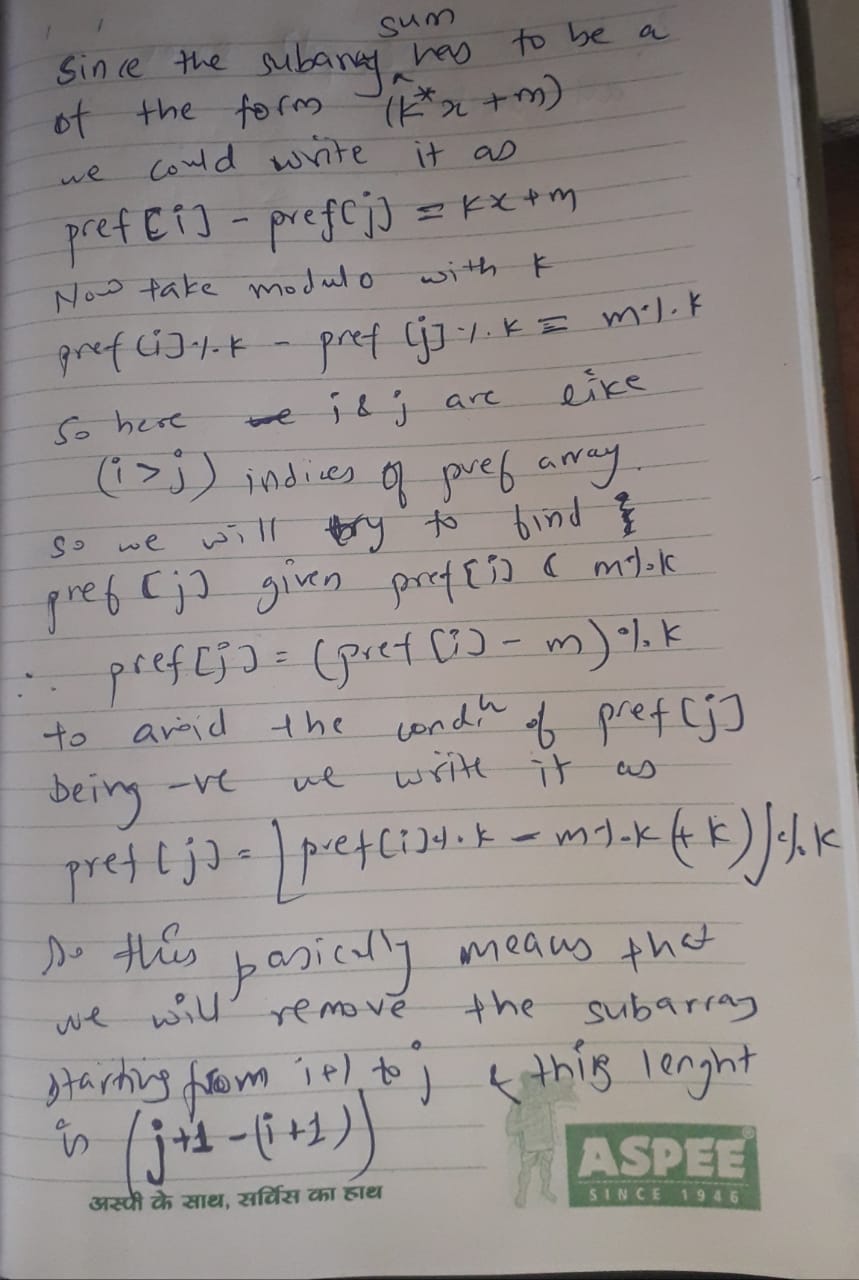 Since the subarray sum has to be a
of the form (k*x+m)
we could write it as
pref[i] - pref[j] = kx+m
Now take modulo with k
pref[i]%k - pref[j]%k ≡ m%k
So here i & j are like
(i>j) indices of pref array.
so we will try to find
pref[j] given pref[i] & m%k
∴ pref[j] = (pref[i] - m)%k
to avoid the condn of pref[j]
being -ve we write it as
pref[j] = [pref[i]%k - m%k (+k)]%k
So this basically means that
we will remove the subarray
starting from i+1 to j & this lenght
is (j+1-(i+1))
ASPEE®
SINCE 1946
अस्पी के साथ, सर्विस का हाथ